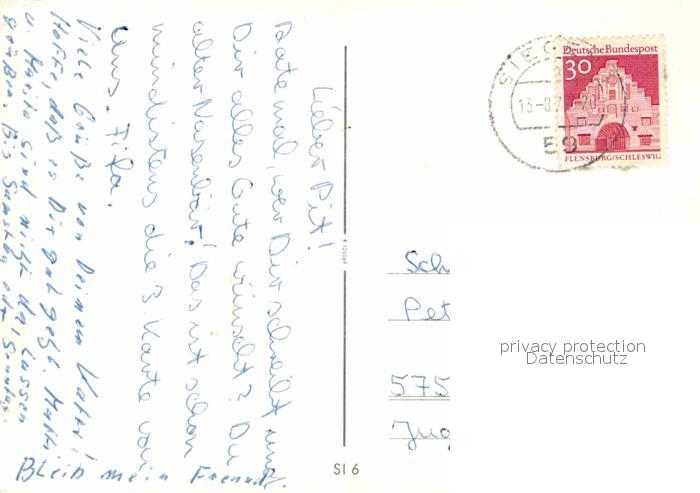 Lieber Pit!
Rate mal, wer Dir schreibt und
Dir alles Gute wünscht? Du
alter Nasenbär! Das ist schon
mindistens die 3. Karte von
uns. Fifa.
Viele Grüße von Deinem Vater!
Hoffe, daß es Dir gut geht. Mutti
u. sind nicht da, lassen
grüßen. Bis Samstag oder Sonntag.
Bleib mein Freund.
SI 6
SIEGEN
13.-8.
59
Deutsche Bundespost
30
FLENSBURG/SCHLESWIG
Sch
Pet
575
Jug
privacy protection
Datenschutz